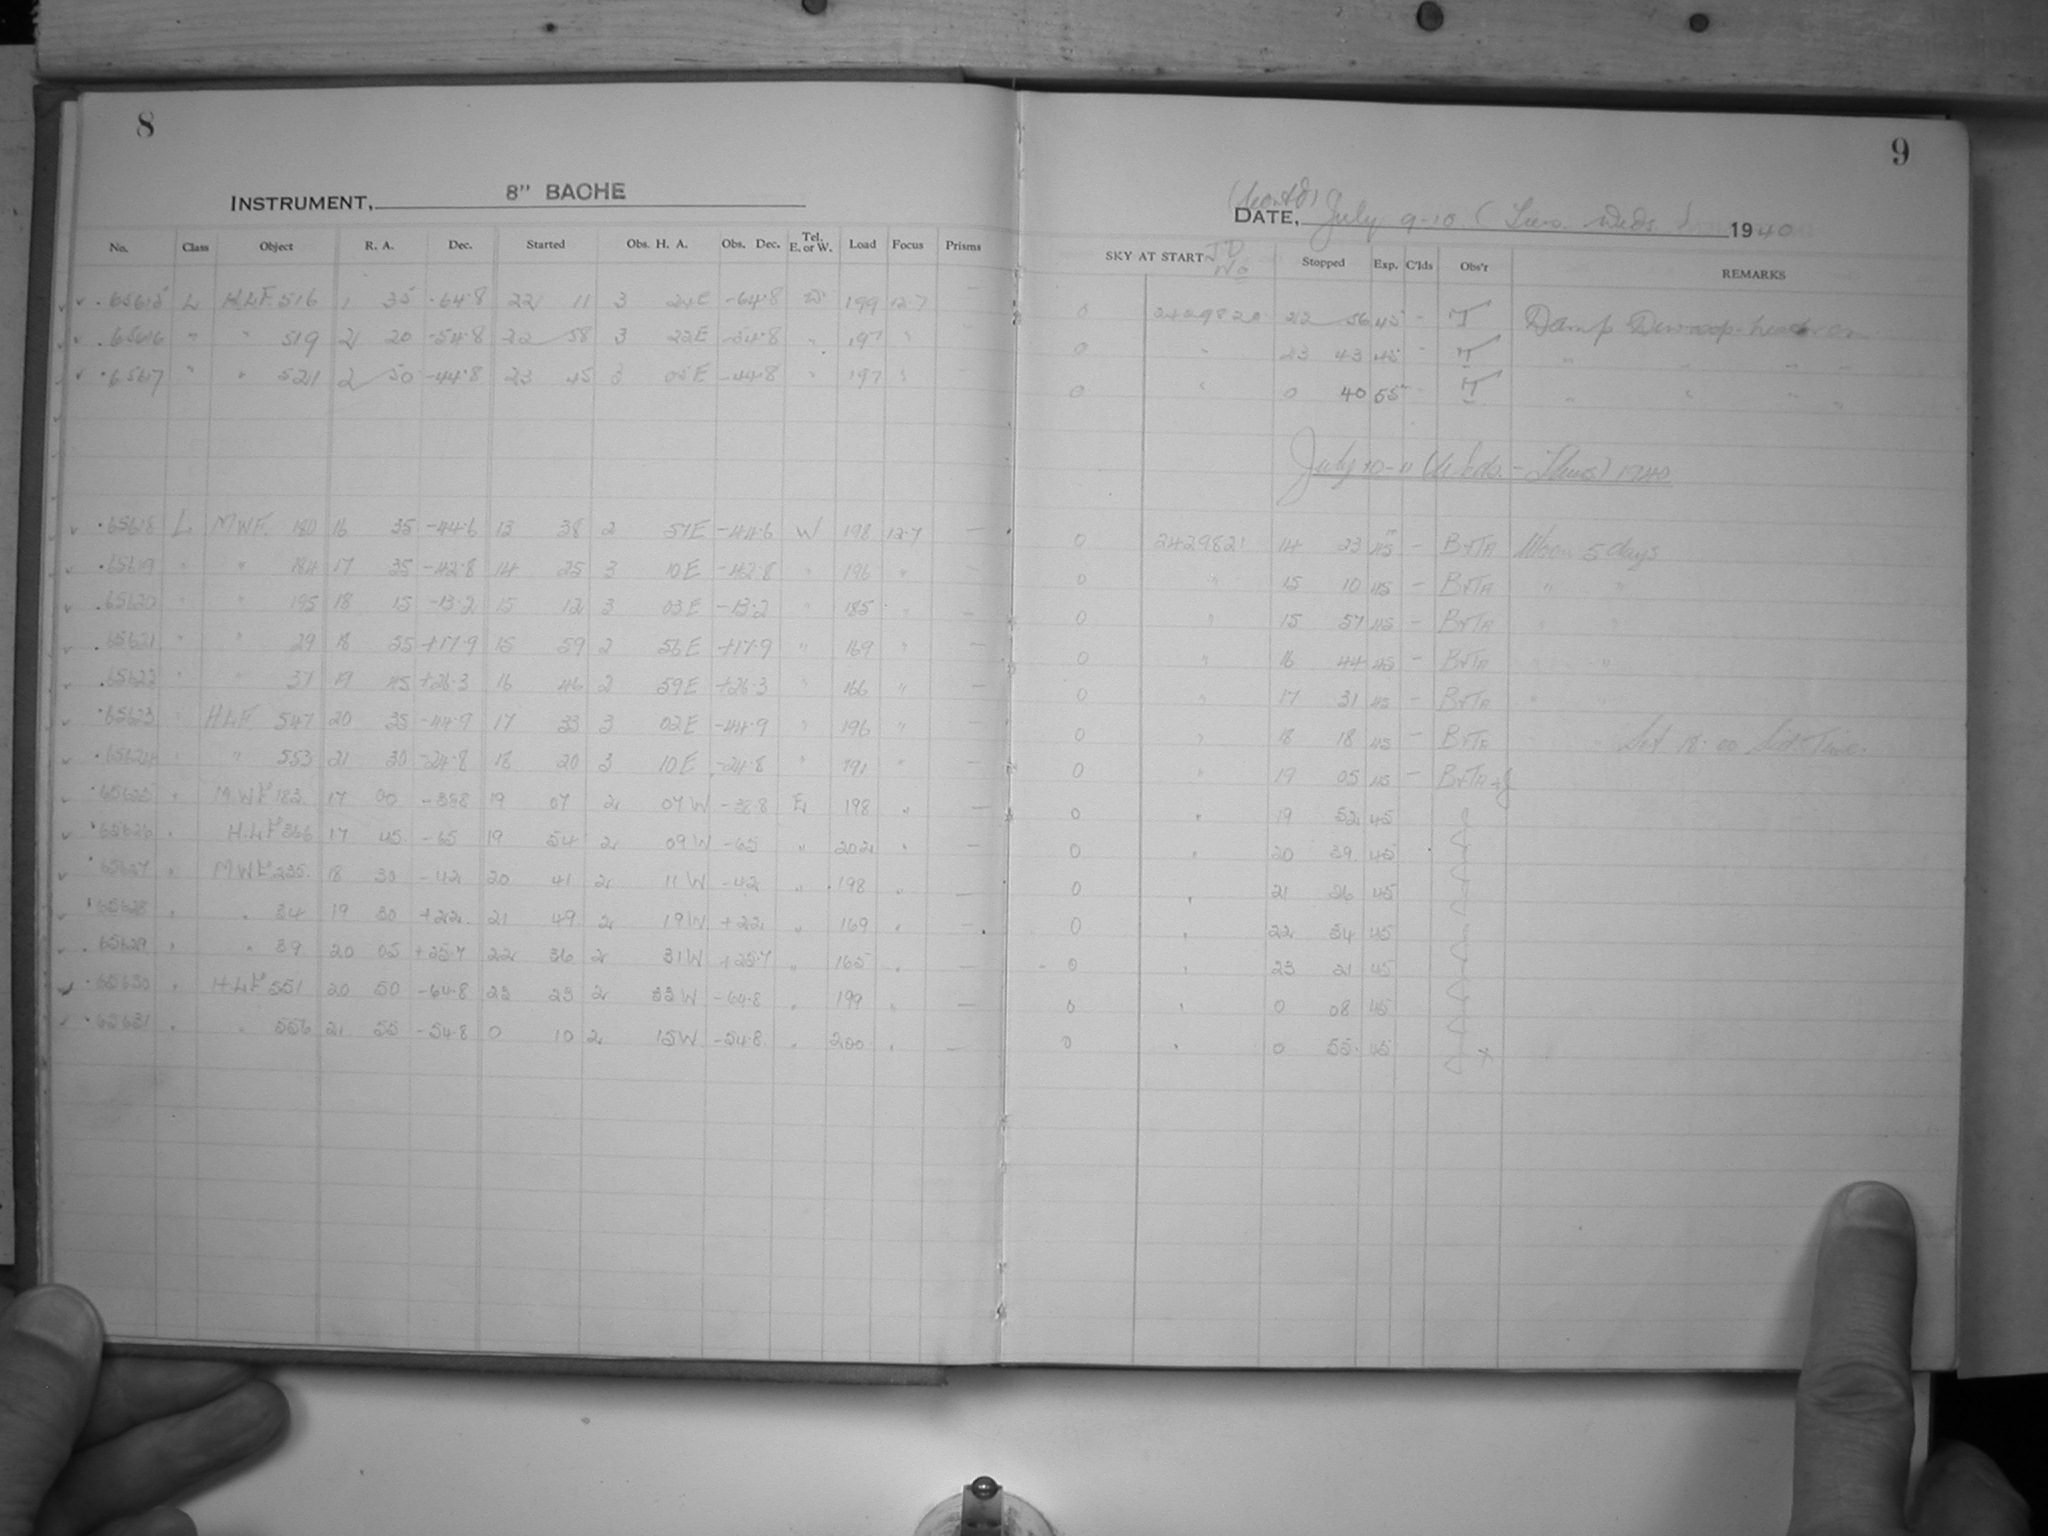 8
INSTRUMENT, 8" BACHE
No. Class Object R. A. Dec. Started Obs. H. A. Obs. Dec. Tel. E. or W. Load Focus Prisms
65615 L H.L.F. 516 1 35 -64.8 22 11 3 24E -64.8 W 199 12.7 —
65616 " " 519 2 20 -54.8 22 58 3 22E -54.8 " 197 "
65617 " " 521 2 50 -44.8 23 45 3 05E -44.8 " 197 "
65618 L MWF. 180 16 35 -44.6 13 38 2 57E -44.6 W 198 12.7 —
65619 " " 184 17 35 -42.8 14 25 3 10E -42.8 " 196 " —
65620 " " 195 18 15 -13.2 15 12 3 03E -13.2 " 185 " —
65621 " " 29 18 55 +17.9 15 59 2 56E +17.9 " 169 " —
65622 " " 37 19 45 +26.3 16 46 2 59E +26.3 " 166 " —
65623 " HLF 547 20 35 -44.9 17 33 3 02E -44.9 " 196 " —
65624 " " 553 21 30 -24.8 18 20 3 10E -24.8 " 191 " —
65625 " MWF 183 17 00 -38.8 19 07 2 07W -38.8 E 198 " —
65626 " H.L.F 366 17 45 -65 19 54 2 09W -65 " 202 " —
65627 " MWF 235 18 30 -42 20 41 2 11W -42 " 198 " —
65628 " " 34 19 30 +22 21 49 2 19W +22 " 169 " —
65629 " " 39 20 05 +25.7 22 36 2 31W +25.7 " 165 " —
65630 " HLF 551 20 50 -64.8 23 23 2 33W -64.8 " 199 " —
65631 " " 556 21 55 -54.8 0 10 2 15W -54.8 " 200 " —
9
(Cont'd)
DATE, July 9-10 (Tues. Weds.) 1940
SKY AT START JD No Stopped Exp. C'lds Obs'r REMARKS
0 2429820 22 56 45 - T Damp Dewcap-heater on
0 " 23 43 45 - T " " " "
0 " 0 40 55 - T " " " "
July 10-11 (Weds. - Thurs) 1940
0 2429821 14 23 45 - B+TA Moon 5 days
0 " 15 10 45 - B+TA " "
0 " 15 57 45 - B+TA " "
0 " 16 44 45 - B+TA " "
0 " 17 31 45 - B+TA " "
0 " 18 18 45 - B+TA " Set 18.00 Sid. Time.
0 " 19 05 45 - B+TA+J
0 " 19 52 45 J
0 " 20 39 45 J
0 " 21 26 45 J
0 " 22 34 45 J
0 " 23 21 45 J
0 " 0 08 45 J
0 " 0 55 45 J x